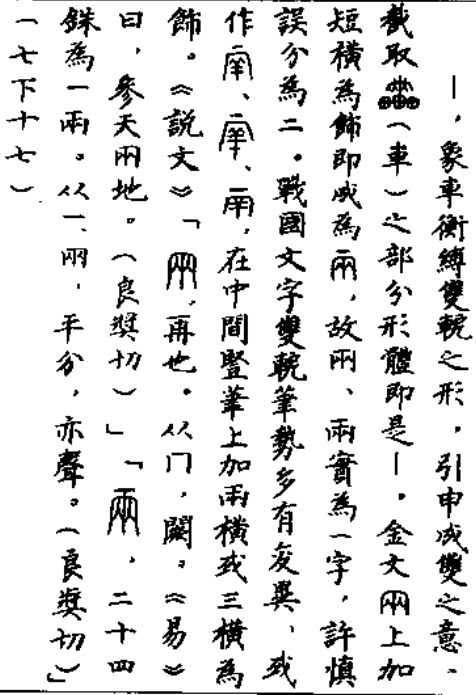 ｜，象車衡縛雙軛之形，引申成雙之意。
截取（車）之部分形體即是｜。金文㒳上加
短横為飾即成為兩，故㒳、兩實為一字，許慎
誤分為二。戰國文字雙軛筆勢多有変異，或
作、、，在中間豎筆上加兩横或三横為
飾。《説文》「㒳，再也。从冂，闕。《易》
曰，參天㒳地。（良奬切）」「兩，二十四
銖為一兩。从一、㒳，平分，亦聲。（良奬切）」
（七下十七）